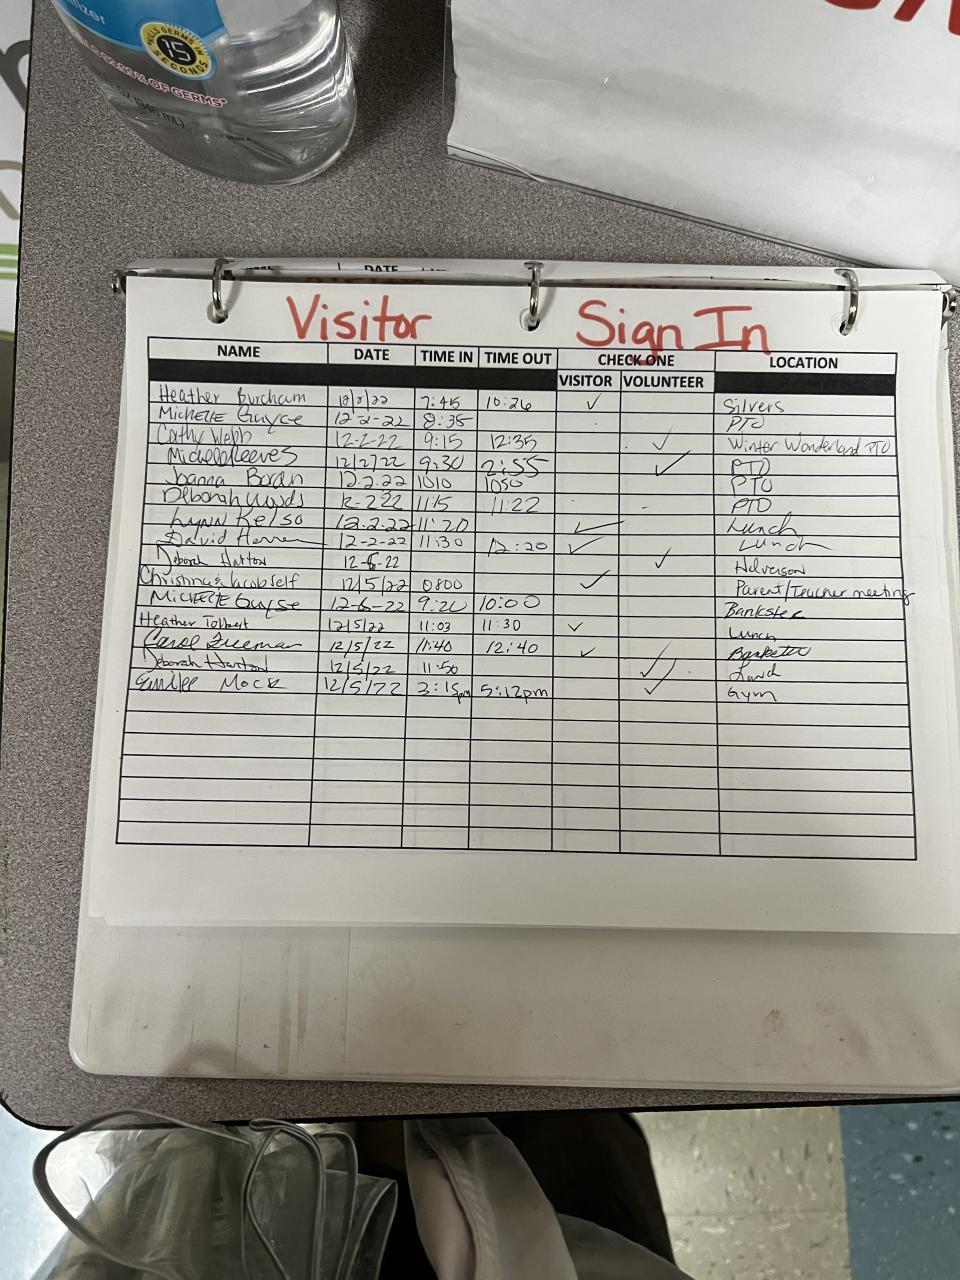 15
SECONDS
OF GERMS*
DATE
Visitor Sign In
NAME DATE TIME IN TIME OUT CHECK ONE LOCATION
VISITOR VOLUNTEER
Heather Burcham 12/2/22 7:45 10:26 ✓ Silvers
Michelle Guyse 12-2-22 8:35 PTO
Cathy Webb 12-2-22 9:15 12:35 ✓ Winter Wonderland PTO
Michelle 12/2/22 9:30 2:55 ✓ PTO
Joanna 12.2.22 1010 1050 PTO
Deborah Woods 12-2-22 11:15 11:22 PTO
Lynn Kelso 12.2.22 11:20 ✓ Lunch
David 12-2-22 11:30 12:20 ✓ Lunch
Deborah 22 ✓ Halverson
Christina 12/5/22 0800 ✓ Parent/Teacher meeting
Michelle Guyse 22 9:20 10:00
Heather Tolbert 12/5/22 11:03 11:30 ✓ Lunch
Carol Freeman 12/5/22 11:40 12:40 ✓
Deborah 12/5/22 11:50 ✓
Mock 12/5/22 3:15pm 5:12pm ✓ Gym